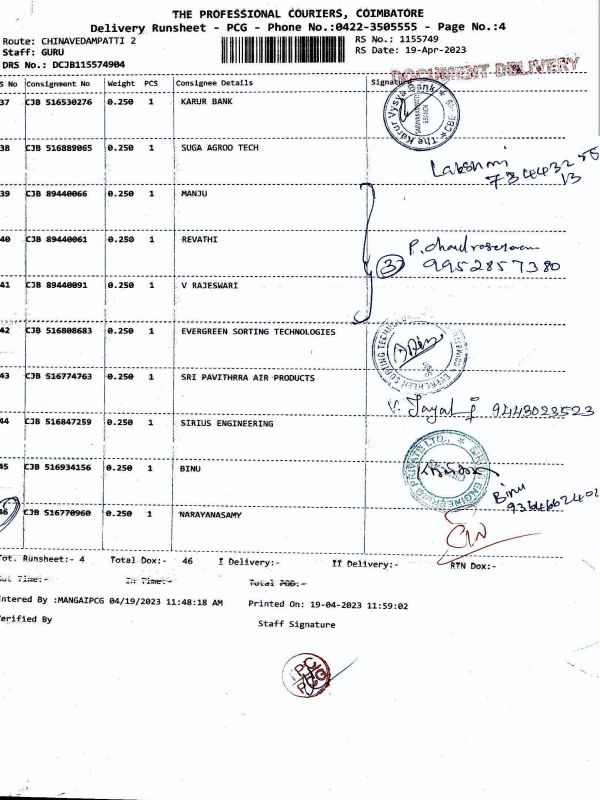 THE PROFESSIONAL COURIERS, COIMBATORE
Delivery Runsheet - PCG - Phone No.:0422-3505555 - Page No.:4
Route: CHINAVEDAMPATTI 2
RS No.: 1155749
Staff: GURU
RS Date: 19-Apr-2023
DRS No.: DCJB115574904
DOCUMENT DELIVERY
S No Consignment No Weight PCS Consignee Details Signature
37 CJB 516530276 0.250 1 KARUR BANK
The Karur Vysya Bank
38 CJB 516889065 0.250 1 SUGA AGROO TECH
Lakshmi
39 CJB 89440066 0.250 1 MANJU
40 CJB 89440061 0.250 1 REVATHI
3
9952857380
41 CJB 89440091 0.250 1 V RAJESWARI
42 CJB 516808683 0.250 1 EVERGREEN SORTING TECHNOLOGIES
43 CJB 516774763 0.250 1 SRI PAVITHRRA AIR PRODUCTS
9443023523
44 CJB 516847259 0.250 1 SIRIUS ENGINEERING
45 CJB 516934156 0.250 1 BINU
Binu
46 CJB 516770960 0.250 1 NARAYANASAMY
Tot. Runsheet:- 4 Total Dox:- 46 I Delivery:- II Delivery:- RTN Dox:-
Out Time:- In Time:- Total POD:-
Entered By :MANGAIPCG 04/19/2023 11:48:18 AM Printed On: 19-04-2023 11:59:02
Verified By Staff Signature